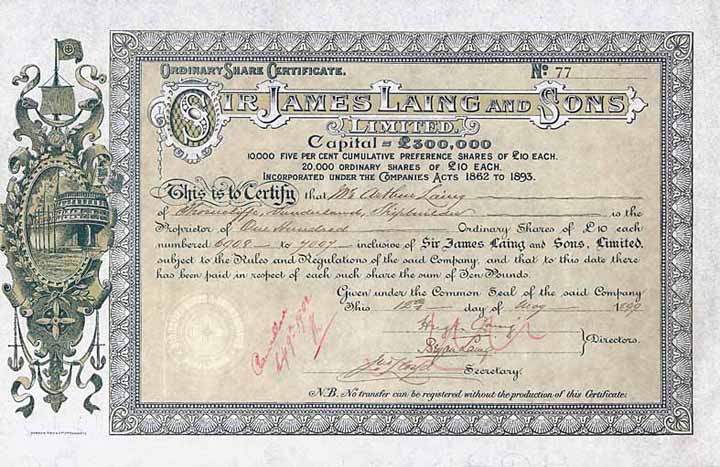 Ordinary Share Certificate.
No. 77
Sir James Laing and Sons
Limited.
Capital = £300,000
10,000 Five per cent Cumulative Preference Shares of £10 each.
20,000 Ordinary Shares of £10 each.
Incorporated under the Companies Acts 1862 to 1893.
This is to Certify that Mr Arthur Laing
of Thorncliffe, Sunderland, Shipbuilder is the
Proprietor of One Hundred Ordinary Shares of £10 each
numbered to inclusive of Sir James Laing and Sons, Limited,
subject to the Rules and Regulations of the said Company, and that to this date there
has been paid in respect of each such share the sum of Ten Pounds.
Given under the Common Seal of the said Company
This day of 1899
Hugh Laing
Bryan Laing
Directors.
Secretary.
Cancelled
N.B. No transfer can be registered without the production of this Certificate.